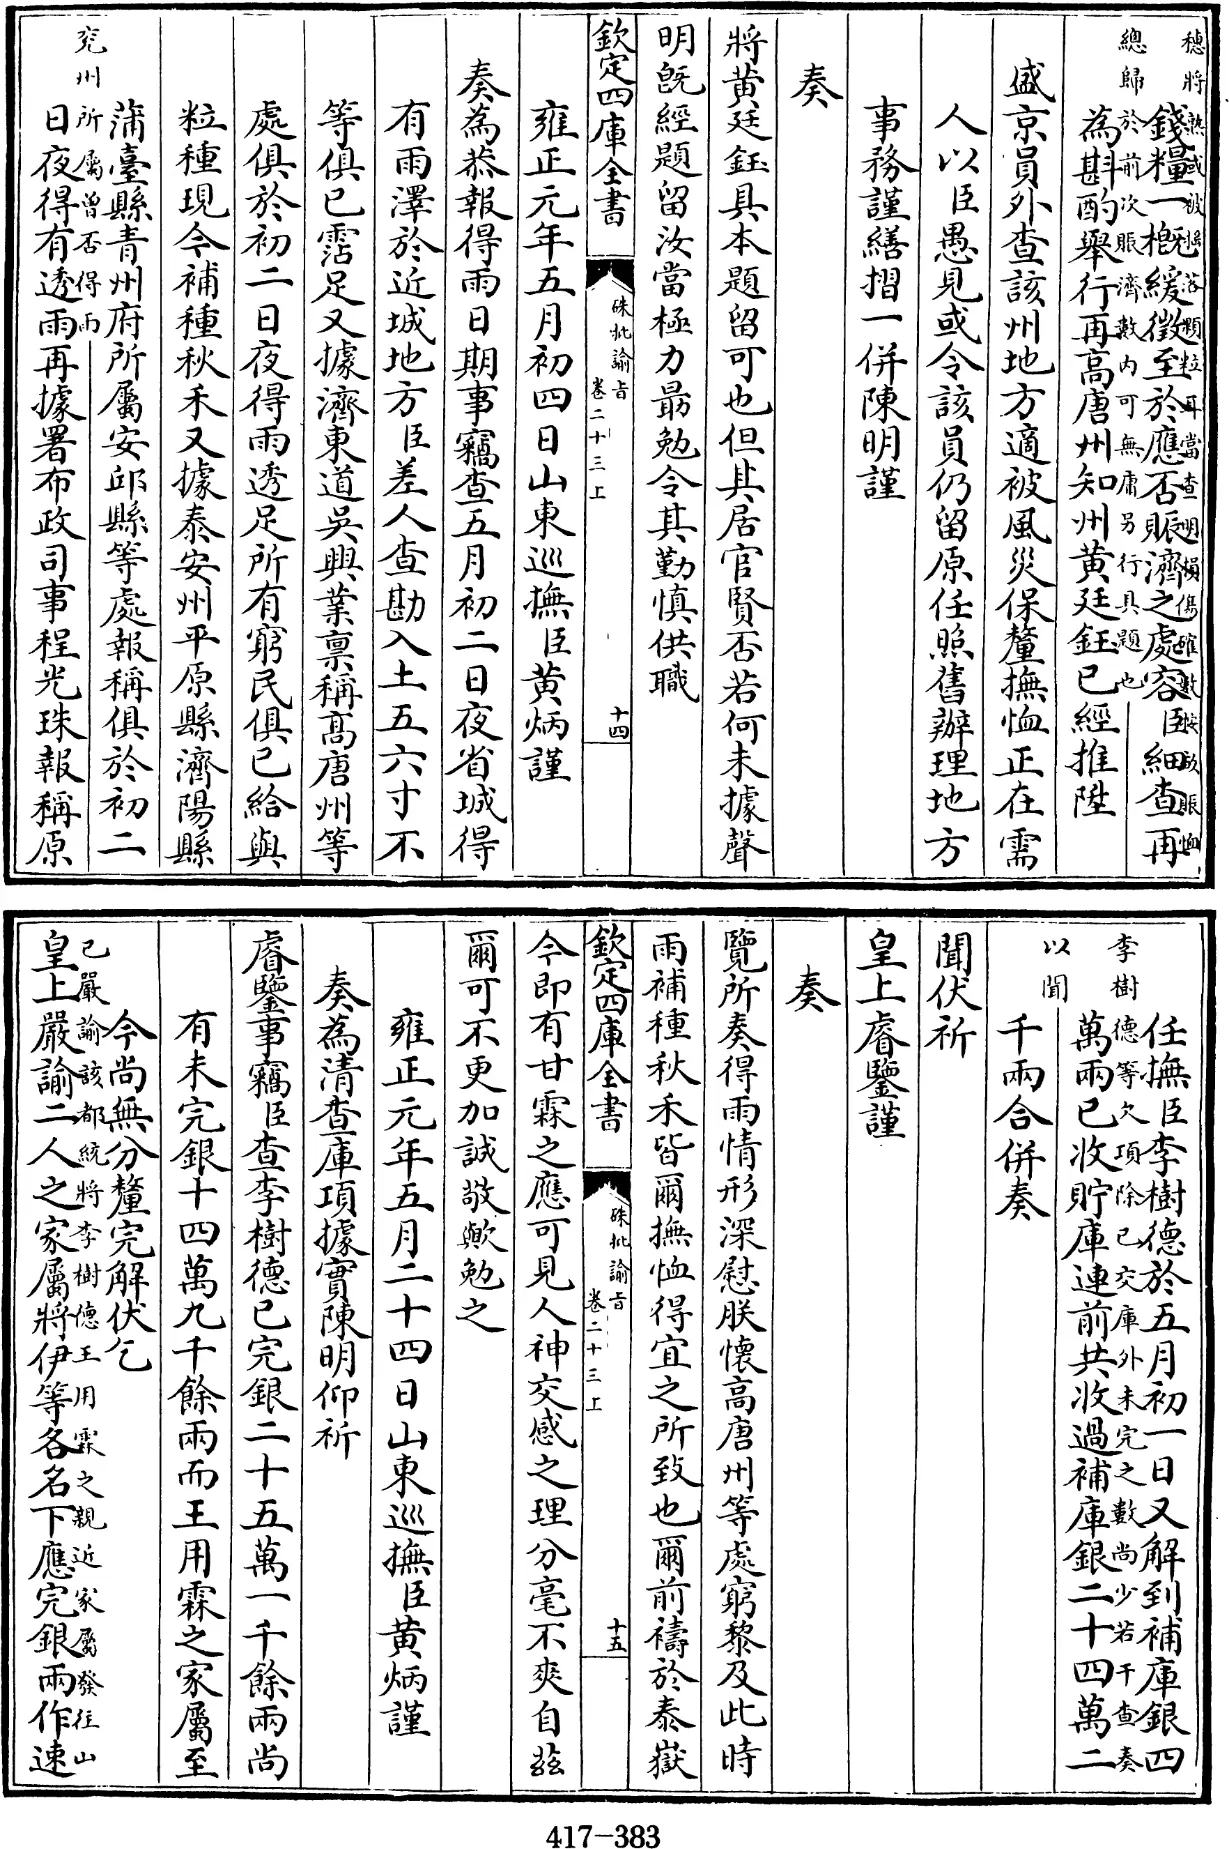 穗將熟或被搖落顆粒耳當查明損傷確數按畝賑恤
錢糧一槩緩徵至於應否賑濟之處容臣細查再
總歸於前次賑濟數內可無庸另行具題也
為斟酌舉行再高唐州知州黃廷鈺已經推陞
盛京員外查該州地方適被風災保釐撫恤正在需
人以臣愚見或令該員仍留原任照舊辦理地方
事務謹繕摺一併陳明謹
奏
將黃廷鈺具本題留可也但其居官賢否若何未據聲
明旣經題留汝當極力朂勉令其勤慎供職
欽定四庫全書
硃批諭旨
卷二十三上
十四
雍正元年五月初四日山東巡撫臣黃炳謹
奏為恭報得雨日期事竊查五月初二日夜省城得
有雨澤於近城地方臣差人查勘入土五六寸不
等俱已霑足又據濟東道吳興業稟稱高唐州等
處俱於初二日夜得雨透足所有窮民俱已給與
粒種現今補種秋禾又據泰安州平原縣濟陽縣
蒲臺縣青州府所屬安邱縣等處報稱俱於初二
兖州所屬曾否得雨
日夜得有透雨再據署布政司事程光珠報稱原
任撫臣李樹德於五月初一日又解到補庫銀四
李樹德等欠項除已交庫外未完之數尚少若干查奏
萬兩已收貯庫連前共收過補庫銀二十四萬二
以聞
千兩合併奏
聞伏祈
皇上睿鑒謹
奏
覽所奏得雨情形深慰朕懷高唐州等處窮黎及此時
雨補種秋禾皆爾撫恤得宜之所致也爾前禱於泰嶽
欽定四庫全書
硃批諭旨
卷二十三上
十五
今即有甘霖之應可見人神交感之理分毫不爽自茲
爾可不更加誠敬歟勉之
雍正元年五月二十四日山東巡撫臣黃炳謹
奏為清查庫項據實陳明仰祈
睿鑒事竊臣查李樹德已完銀二十五萬一千餘兩尚
有未完銀十四萬九千餘兩而王用霖之家屬至
今尚無分釐完解伏乞
已嚴諭該都統將李樹德王用霖之親近家屬發往山
皇上嚴諭二人之家屬將伊等各名下應完銀兩作速
417-383